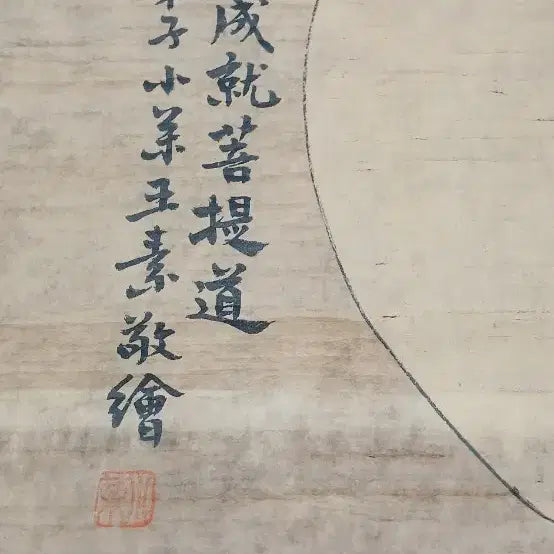 成就菩提道
子小某王素敬繪